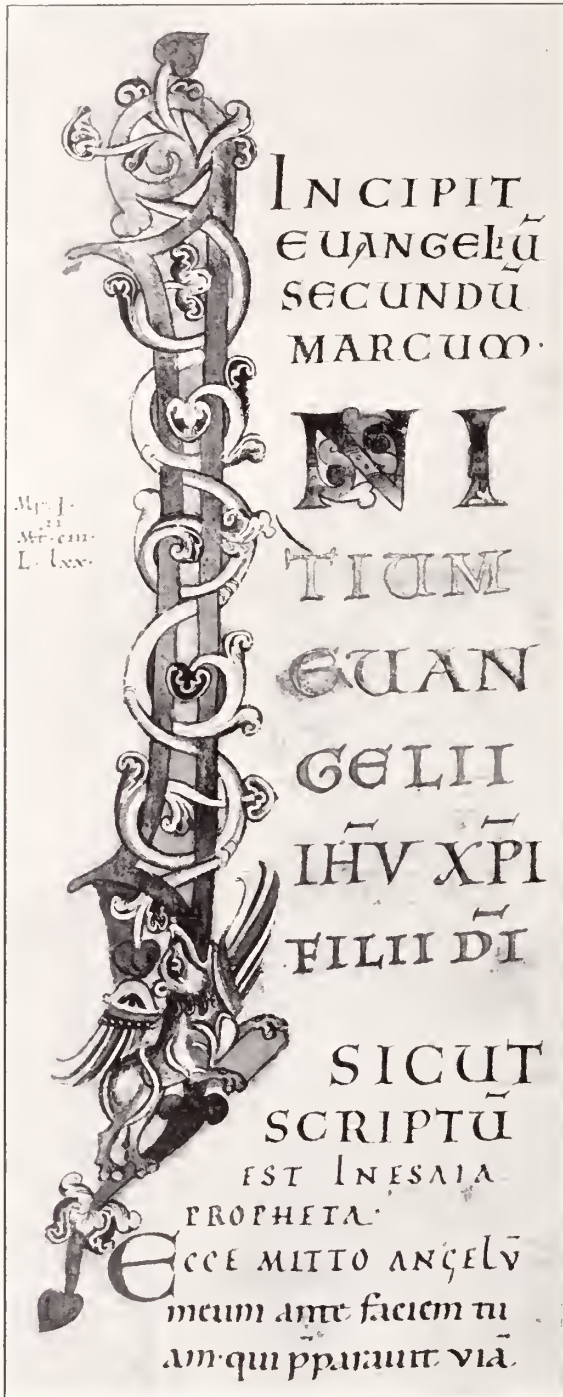 INCIPIT
EUANGELIŪ
SECUNDŪ
MARCUM·
NI
TIUM
EUAN
GELII
IH̄V XP̄I
FILII D̄I
SICUT
SCRIPTŪ
EST INESAIA
PROPHETA·
ECCE MITTO ANGELV̄
meum ante faciem tu
am·qui p̄parauit viā.
L· lxx·